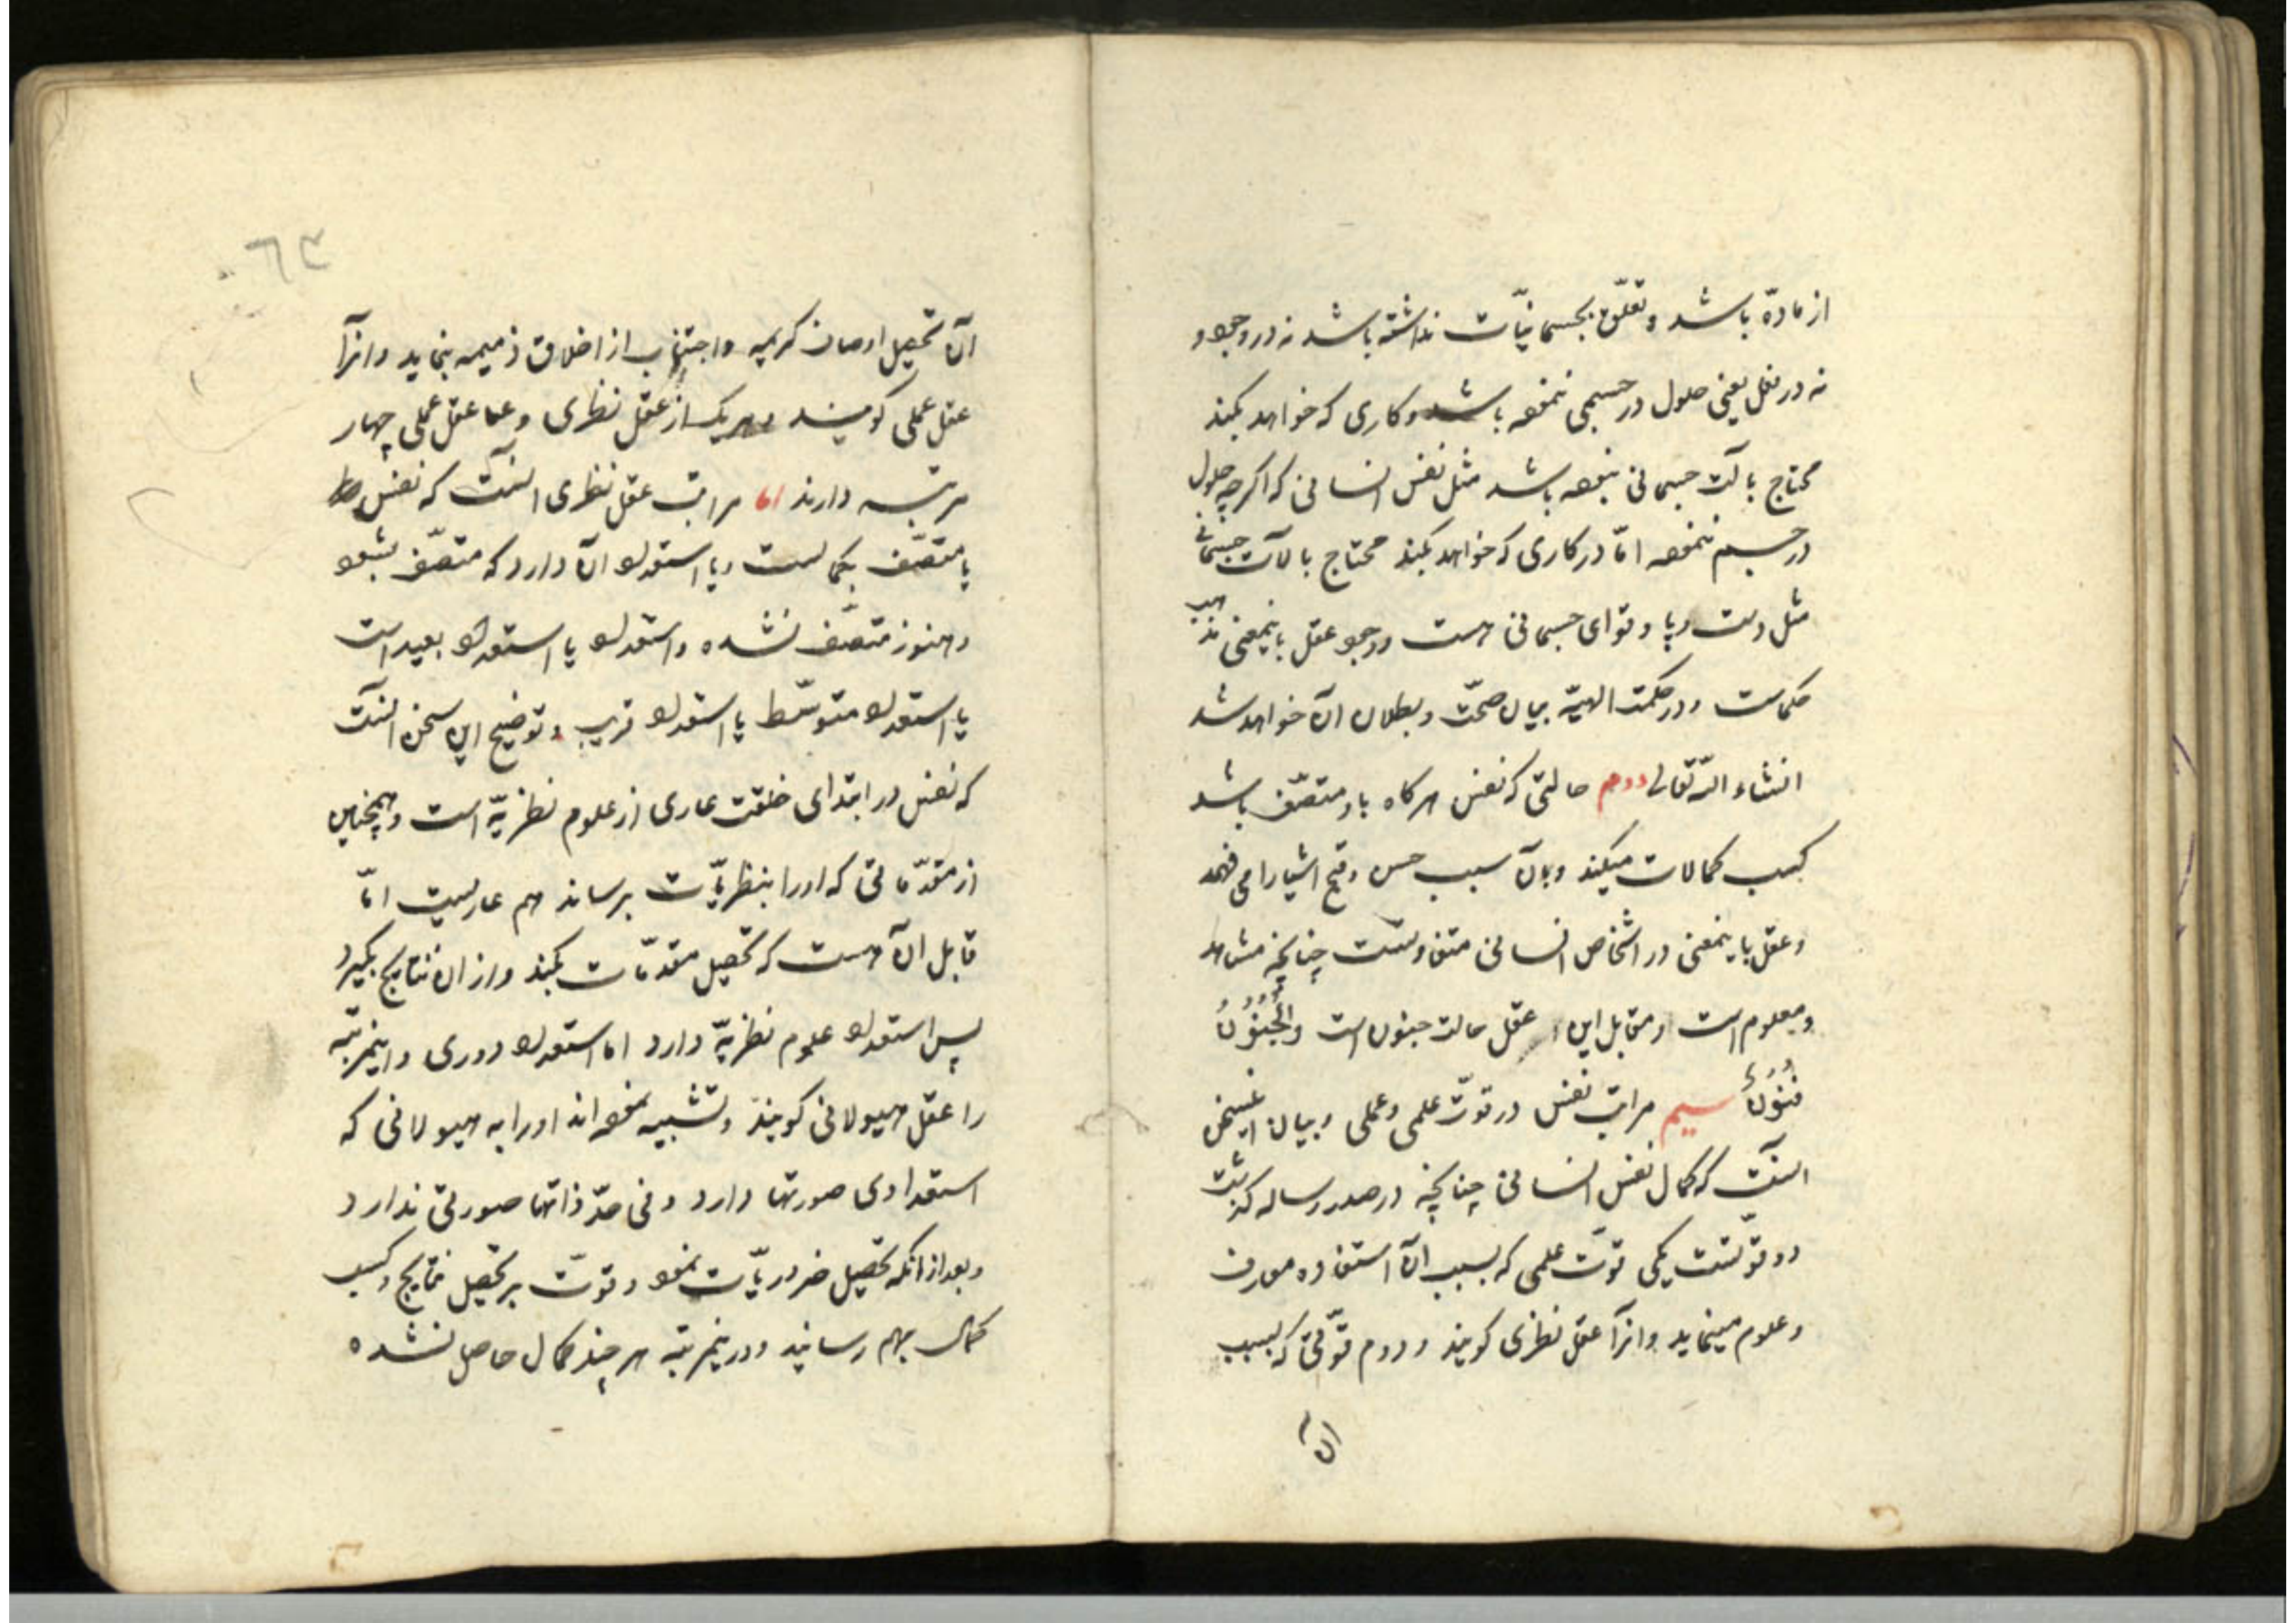 از مادّه باشد و تعلّق بجسمانیّات نداشته باشد نه در وجود و
نه در فعل یعنی حلول در جسمی ننموده باشد و کاری که خواهد بکند
محتاج بآلت جسمانی نبوده باشد مثل نفس انسانی که اکرچه حلول
در جسم ننموده امّا در کاری که خواهد بکند محتاج بآلات جسمانی
مثل دست و پا و قوای جسمانی هست و وجود عقل باینمعنی مذهب
حکماست و در حکمت الهیّه بیان صحّت و بطلان آن خواهد شد
انشاء الله تعالی دوم حالتی که نفس هرکاه باو متصّف باشد
کسب کمالات میکند و بآن سبب حسن و قبح اشیا را می فهمد
و عقل باینمعنی در اشخاص انسانی متفاوتست چنانچه مشاهد
و معلوم است و مقابل این عقل حالت جنون است وَالْجُنُونُ
فُنُونٌ سیم مراتب نفس در قوّت علمی و عملی و بیان اینسخن
آنست که کمال نفس انسانی چنانچه در صدر رساله کذشت
دو قوّتست یکی قوّت علمی که بسبب آن استفاده معارف
و علوم مینماید و آنرا عقل نظری کویند و دوم قوّتی که بسبب
آن
٦٣
آن تحصیل اوصاف کریمه و اجتناب از اخلاق ذمیمه بنماید و آنرا
عقل عملی کویند و هریک از عقل نظری و عقل عملی چهار
مرتبه دارند اما مراتب عقل نظری آنست که نفس
یا متصّف بکمالست و یا استعداد آن دارد که متصّف بشود
و هنوز متصّف نشده و استعداد یا استعداد بعید است
یا استعداد متوسّط یا استعداد قریب و توضیح این سخن آنست
که نفس در ابتدای خلقت عاری از علوم نظریّه است و همچنین
از مقدّماتی که او را بنظریّات برساند هم عاریست امّا
قابل آن هست که تحصیل مقدّمات بکند و از آن نتایج بکیرد
پس استعداد علوم نظریّه دارد اما استعداد دوری و اینمرتبه
را عقل هیولانی کویند و تشبیه نموده اند او را به هیولانی که
استعدادی صورتها دارد و فی حدّ ذاتها صورتی ندارد
و بعد از آنکه تحصیل ضروریّات نمود و قوّت بر تحصیل نتایج و کسب
کمال بهم رسانید و درینمرتبه هرچند کمال حاصل نشده